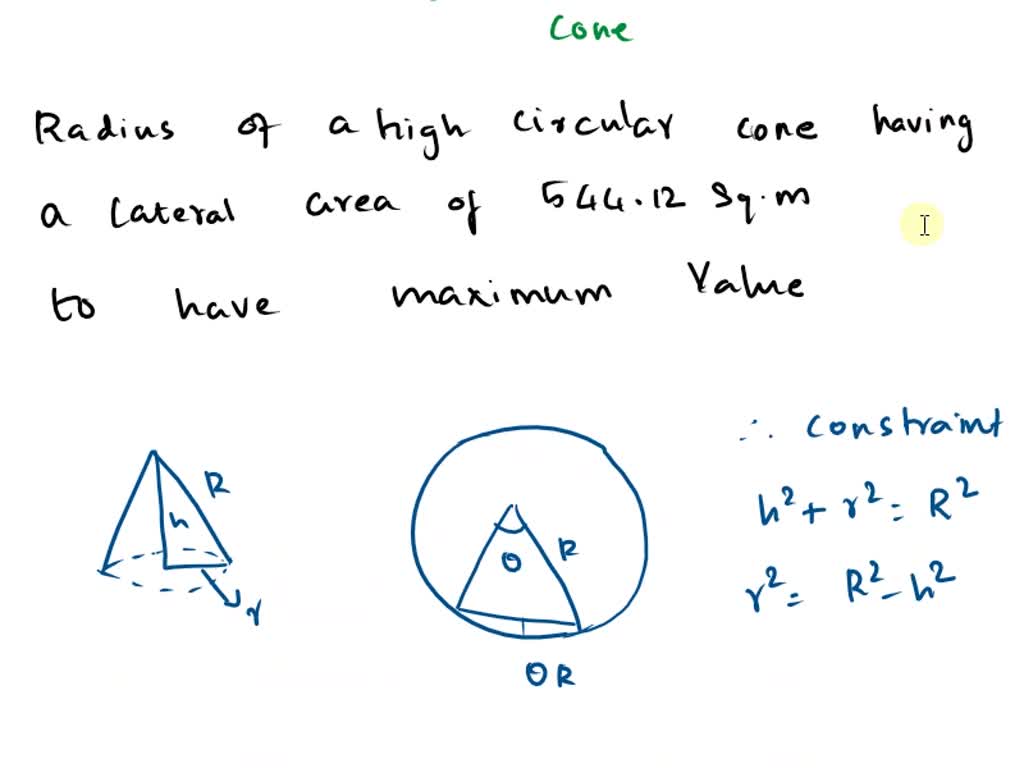 Cone
Radius of a high circular cone having
a Lateral area of 544.12 Sq.m
to have maximum Value
R
h
r
θ
R
θR
∴ constraint
h² + r² = R²
r² = R² - h²